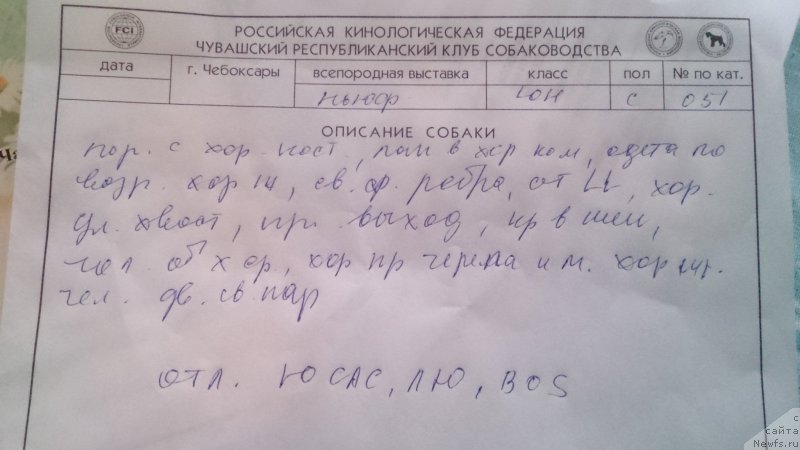 FCI
РОССИЙСКАЯ КИНОЛОГИЧЕСКАЯ ФЕДЕРАЦИЯ
ЧУВАШСКИЙ РЕСПУБЛИКАНСКИЙ КЛУБ СОБАКОВОДСТВА
дата г. Чебоксары всепородная выставка класс пол № по кат.
ньюф юн с 051
ОПИСАНИЕ СОБАКИ
пор. с хор. кост, в хор ком, одета по
возр. хор, св. ф. ребра, от, хор.
дл. хвост, пр. выход, в шеи,
гол. об хор, хор пр черепа и м. хор
чел. дв. св. пар
отл. ЮСАС, ЛЮ, BOS
с
сайта
Newfs.ru